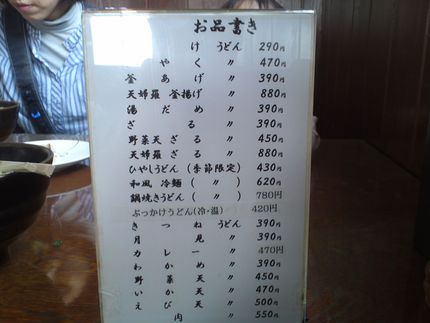 お品書き
け うどん 290円
や く 〃 470円
釜 あ げ 〃 390円
天婦羅 釜揚げ 〃 880円
湯 だ め 〃 390円
ざ る 〃 390円
野菜天 ざ る 〃 450円
天婦羅 ざ る 〃 880円
ひやしうどん (季節限定) 430円
和風 冷麺 ( 〃 ) 620円
鍋焼きうどん ( 〃 ) 780円
ぶっかけうどん(冷・温) 420円
き つ ね うどん 390円
月 見 〃 390円
カ レ ー 〃 470円
わ か め 〃 390円
野 菜 天 〃 450円
い か 天 〃 470円
え び 天 〃 500円
肉 〃 550円